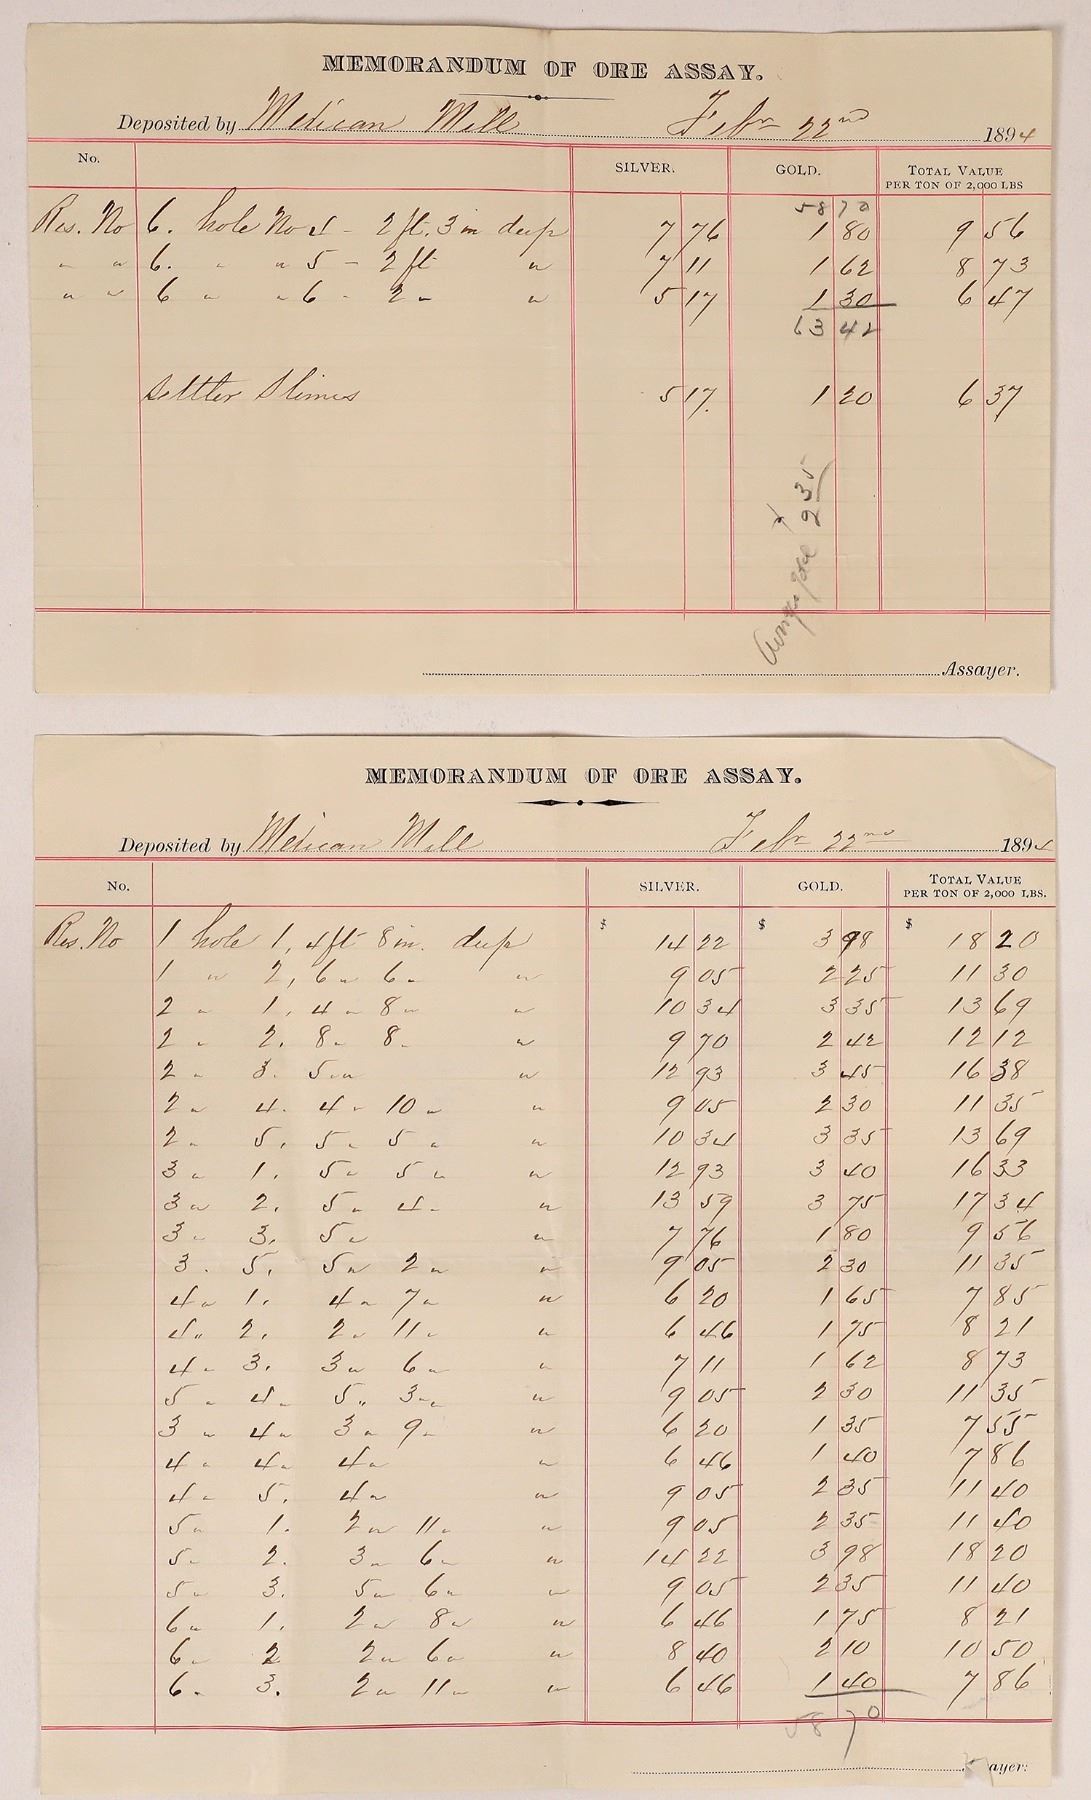 MEMORANDUM OF ORE ASSAY.
Deposited by Mexican Mill Feby 22nd 1894
No. SILVER. GOLD. TOTAL VALUE PER TON OF 2,000 LBS
58 70
Res. No 6. hole No 4 - 2 ft. 3 in deep 7 76 1 80 9 56
" " 6. " " 5 - 2 ft " 7 11 1 62 8 73
" " 6 " " 6 - 2 " " 5 17 1 30 6 47
63 42
Settler Slimes 5 17. 1 20 6 37
Average gold $ 2 35
Assayer.
MEMORANDUM OF ORE ASSAY.
Deposited by Mexican Mill Feby 22nd 1894
No. SILVER. GOLD. TOTAL VALUE PER TON OF 2,000 LBS.
Res. No 1 hole 1, 4 ft 8 in. deep $ 14 22 $ 3 98 $ 18 20
1 " 2, 6 " 6 " " 9 05 2 25 11 30
2 " 1, 4 " 8 " " 10 34 3 35 13 69
2 " 2. 8 " 8 " " 9 70 2 42 12 12
2 " 3. 5 " " " 12 93 3 45 16 38
2 " 4. 4 " 10 " " 9 05 2 30 11 35
2 " 5. 5 " 5 " " 10 34 3 35 13 69
3 " 1. 5 " 5 " " 12 93 3 40 16 33
3 " 2. 5 " 4 " " 13 59 3 75 17 34
3 " 3. 5 " " 7 76 1 80 9 56
3 . 5. 5 " 2 " " 9 05 2 30 11 35
4 " 1. 4 " 7 " " 6 20 1 65 7 85
4 " 2. 2 " 11 " " 6 46 1 75 8 21
4 " 3. 3 " 6 " " 7 11 1 62 8 73
5 " 4 " 5 " 3 " " 9 05 2 30 11 35
3 " 4 " 3 " 9 " " 6 20 1 35 7 55
4 " 4 " 4 " " 6 46 1 40 7 86
4 " 5. 4 " " 9 05 2 35 11 40
5 " 1. 2 " 11 " " 9 05 2 35 11 40
5 " 2. 3 " 6 " " 14 22 3 98 18 20
5 " 3. 5 " 6 " " 9 05 2 35 11 40
6 " 1. 2 " 8 " " 6 46 1 75 8 21
6 " 2 2 " 6 " " 8 40 2 10 10 50
6. 3. 2 " 11 " " 6 46 1 40 7 86
58 70
ayer.